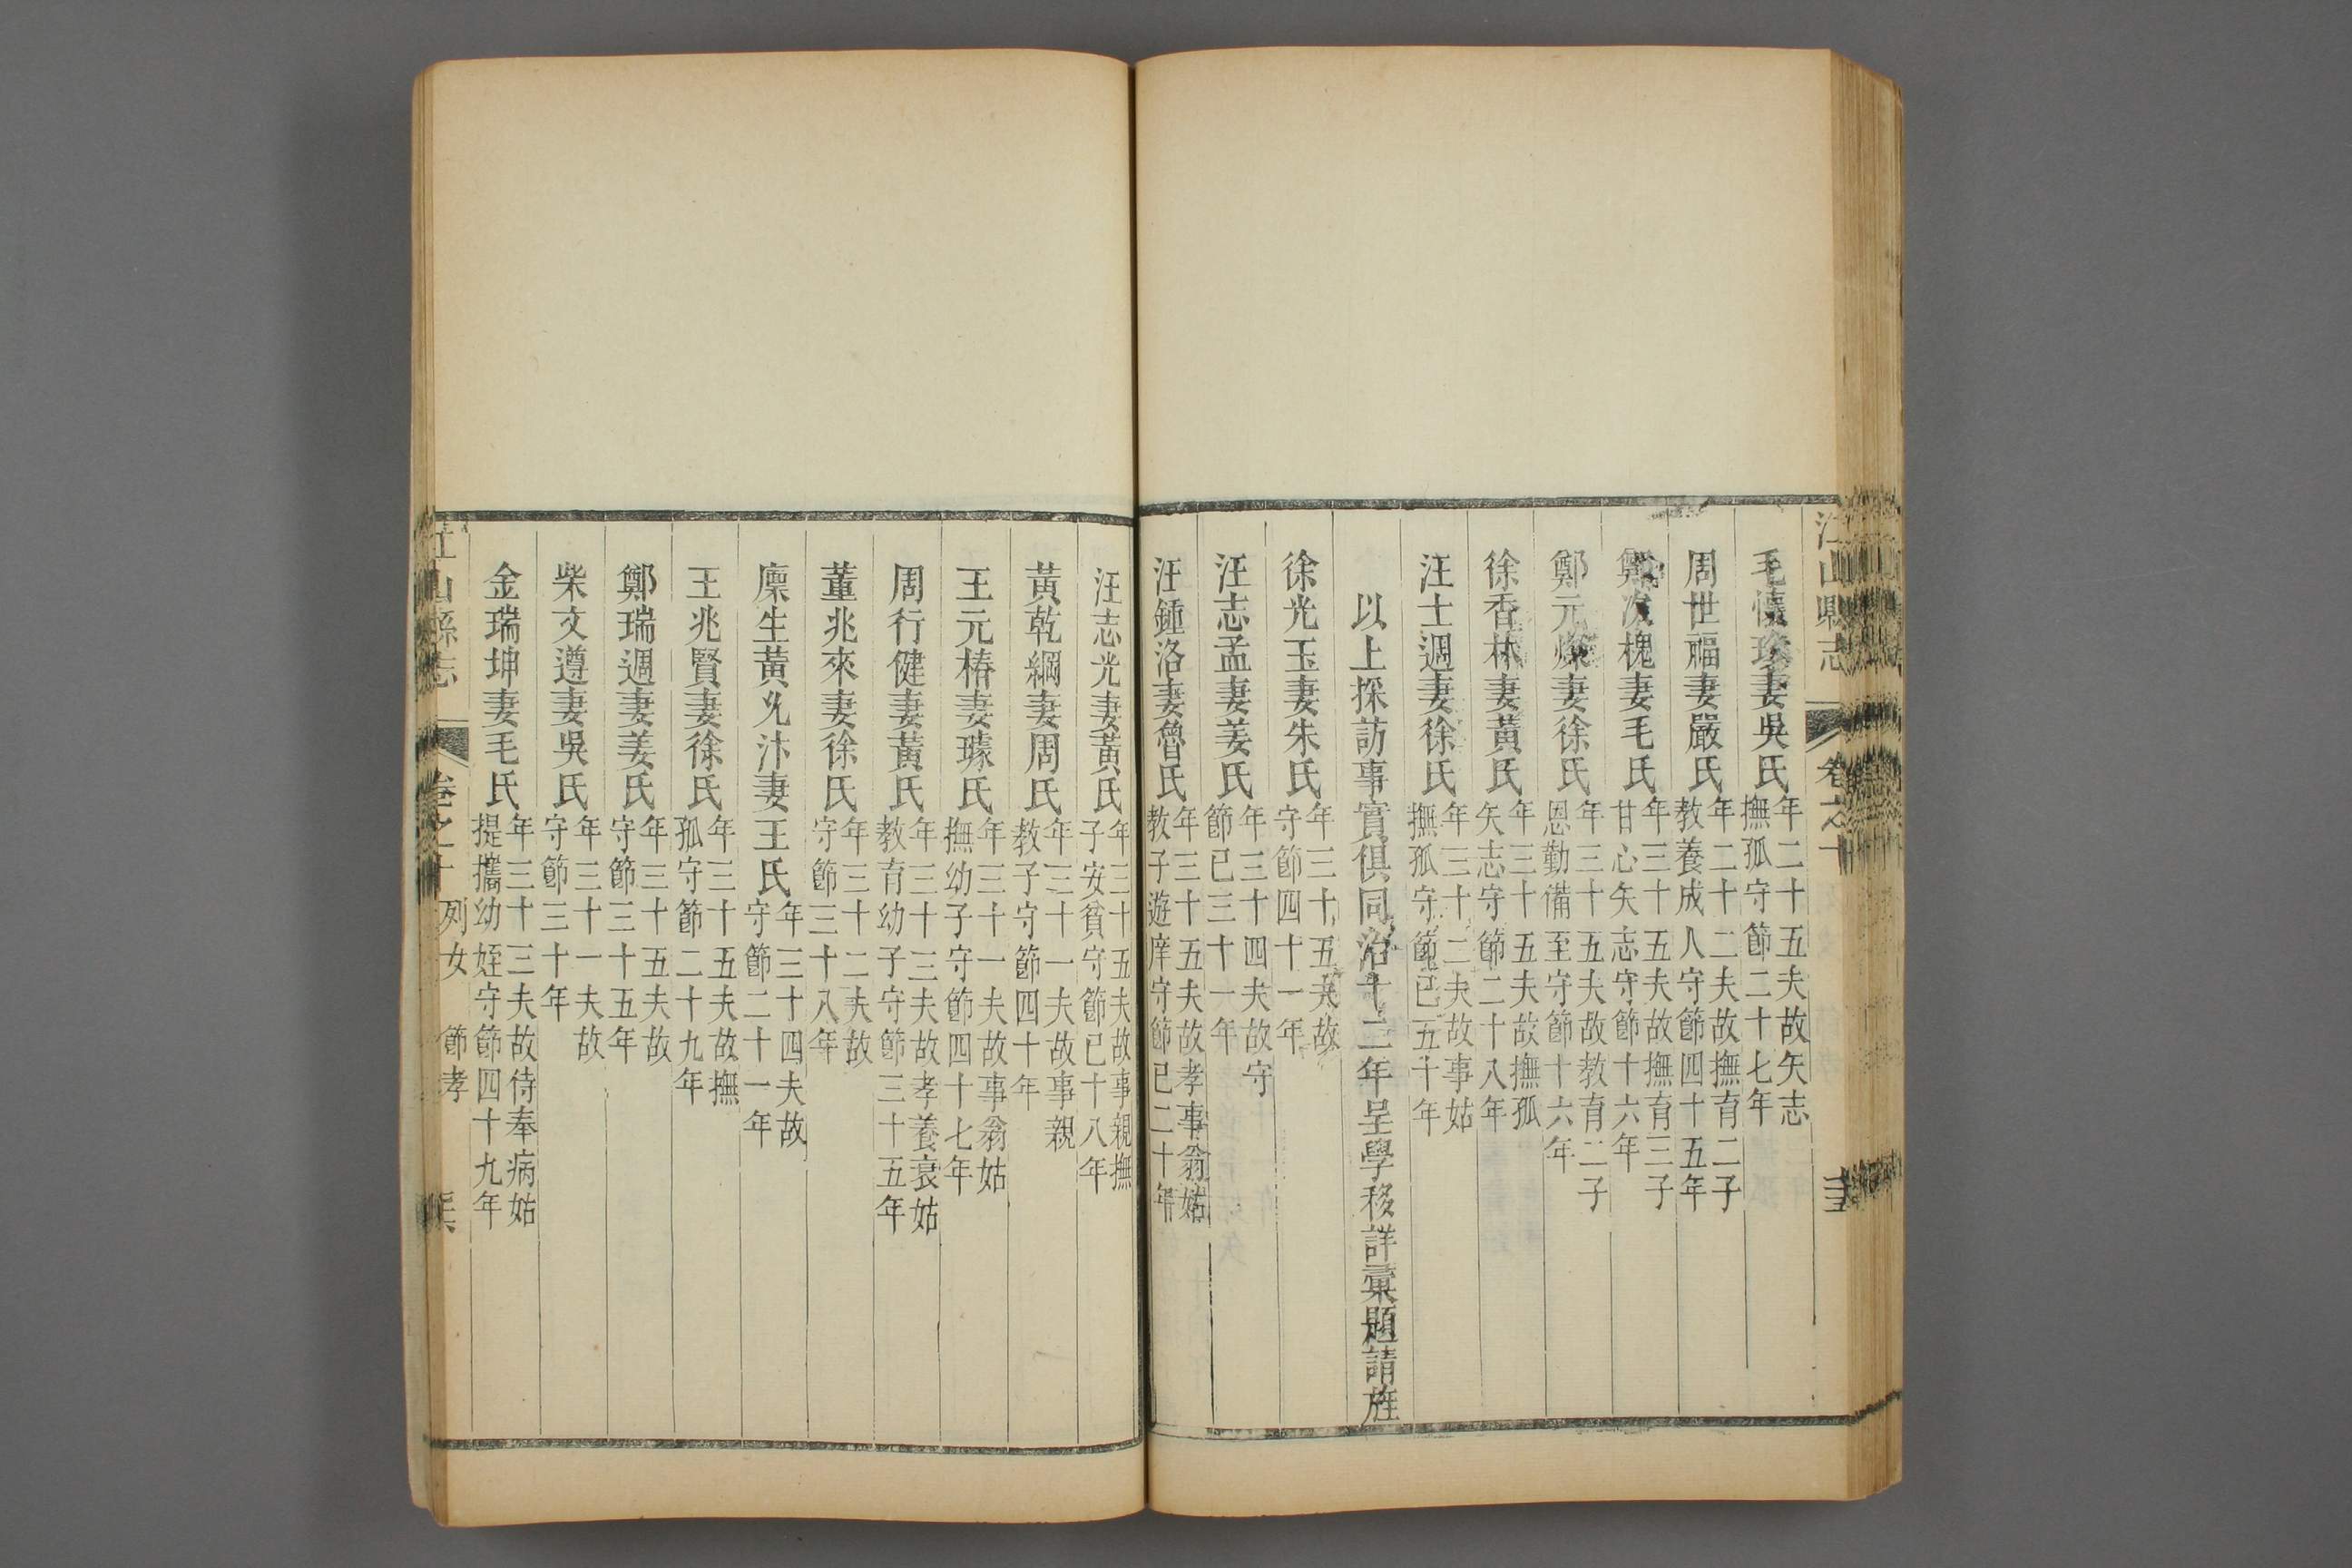 江山縣志 卷之十
毛懷珍妻吳氏 年二十五夫故矢志撫孤守節二十七年
周世福妻嚴氏 年二十二夫故撫育二子教養成人守節四十五年
鄭次槐妻毛氏 年三十五夫故撫育三子甘心矢志守節十六年
鄭元燦妻徐氏 年三十五夫故教育二子恩勤備至守節十六年
徐香林妻黃氏 年三十五夫故撫孤矢志守節二十八年
汪士週妻徐氏 年三十二夫故事姑撫孤守節已五十年
以上採訪事實俱同治十二年呈學移詳彙題請旌
徐光玉妻朱氏 年三十五夫故守節四十一年
汪志孟妻姜氏 年三十四夫故守節已三十一年
汪鍾洛妻魯氏 年三十五夫故孝事翁姑教子遊庠守節已二十年
汪志光妻黃氏 年三十五夫故事親撫子安貧守節已十八年
黃乾綱妻周氏 年三十一夫故事親教子守節四十年
王元椿妻璩氏 年三十一夫故事翁姑撫幼子守節四十七年
周行健妻黃氏 年三十三夫故孝養衰姑教育幼子守節三十五年
董兆來妻徐氏 年三十二夫故守節三十八年
廩生黃兆汴妻王氏 年三十四夫故守節二十一年
王兆賢妻徐氏 年三十五夫故撫孤守節二十九年
鄭瑞週妻姜氏 年三十五夫故守節三十五年
柴文遵妻吳氏 年三十一夫故守節三十年
金瑞坤妻毛氏 年三十三夫故侍奉病姑提攜幼姪守節四十九年
江山縣志 卷之十 列女 節孝